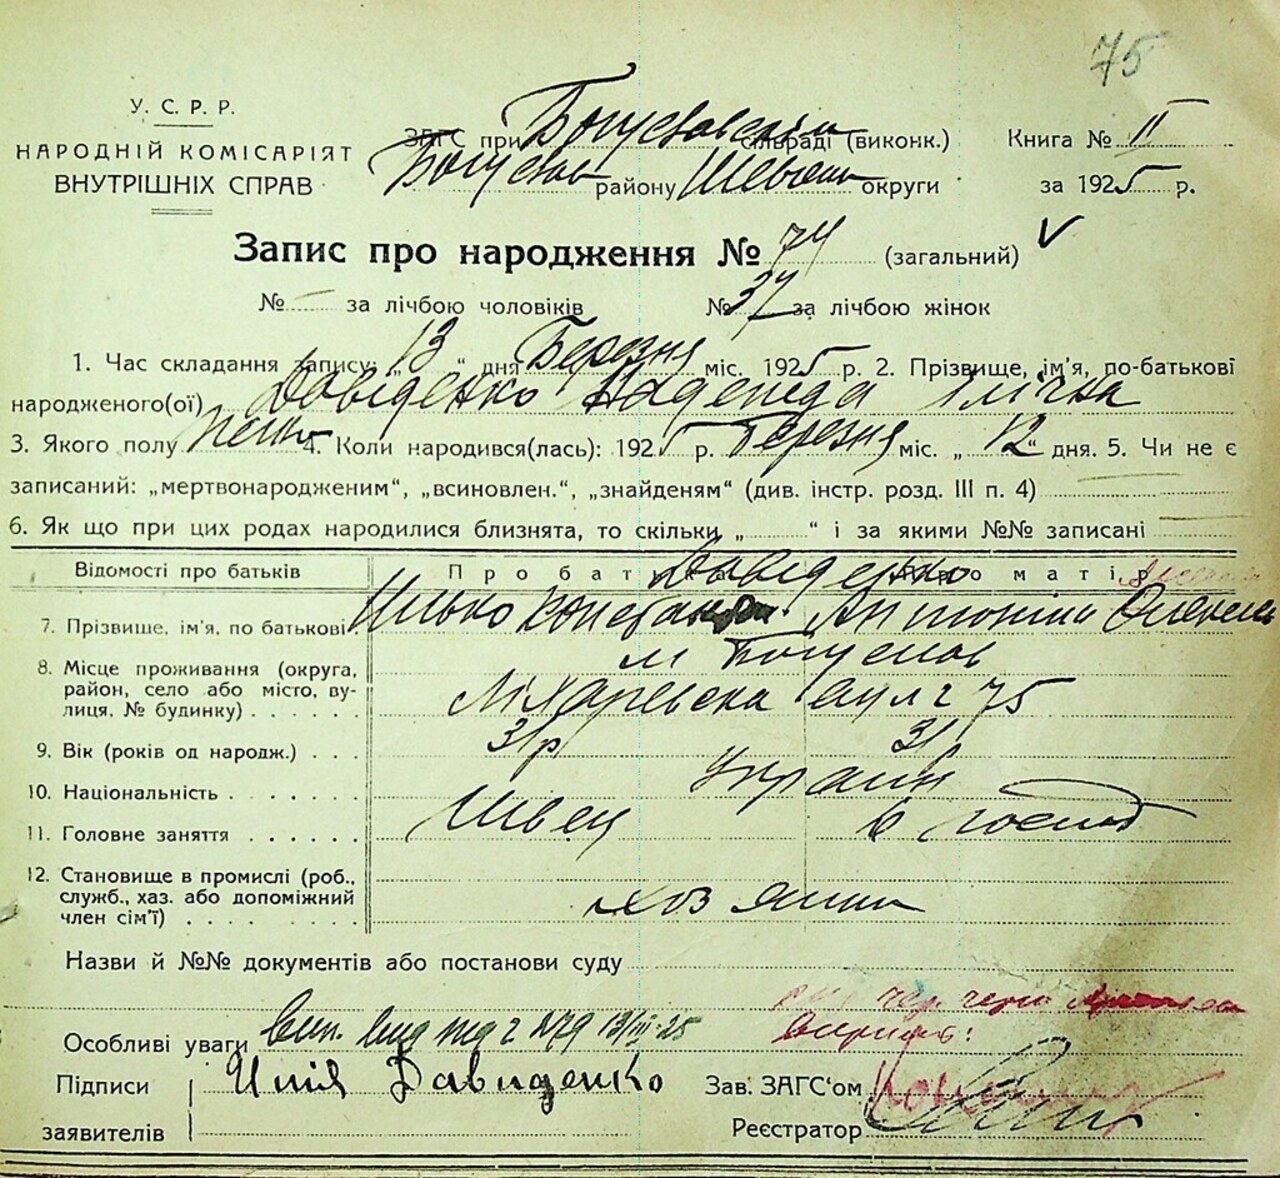 75
У. С. Р. Р.
НАРОДНІЙ КОМІСАРІЯТ
ВНУТРІШНІХ СПРАВ
ЗАГС при Богуславськім сільраді (виконк.) Книга № II
Богуслав району Шевчен округи за 1925 р.
Запис про народження № 74 (загальний)
№ — за лічбою чоловіків № 37 за лічбою жінок
1. Час складання запису: „13“ дня Березня міс. 1925 р. 2. Прізвище, ім'я, по-батькові
народженого(ої) Довіденко Надежда Ілічна
3. Якого полу жін 4. Коли народився(лась): 1925 р. Березня міс. „12“ дня. 5. Чи не є
записаний: „мертвонародженим“, „всиновлен.“, „знайденям“ (див. інстр. розд. III п. 4)
6. Як що при цих родах народилися близнята, то скільки „.......“ і за якими №№ записані
Відомості про батьків Про батька Про матір
Довіденко
7. Прізвище, ім'я, по батькові Илько Антоніна
м Богуслав
8. Місце проживання (округа,
район, село або місто, ву-
лиця, № будинку) вул 75
9. Вік (років од народж.) 31р 31р
10. Національність Украін
11. Головне заняття Швец в господ
12. Становище в промислі (роб.,
служб., хаз. або допоміжний
член сім'ї) хозяин
Назви й №№ документів або постанови суду
Особливі уваги Вип. 13/III-25
Підписи Илія Давиденко Зав. ЗАГС'ом
заявителів Реєстратор